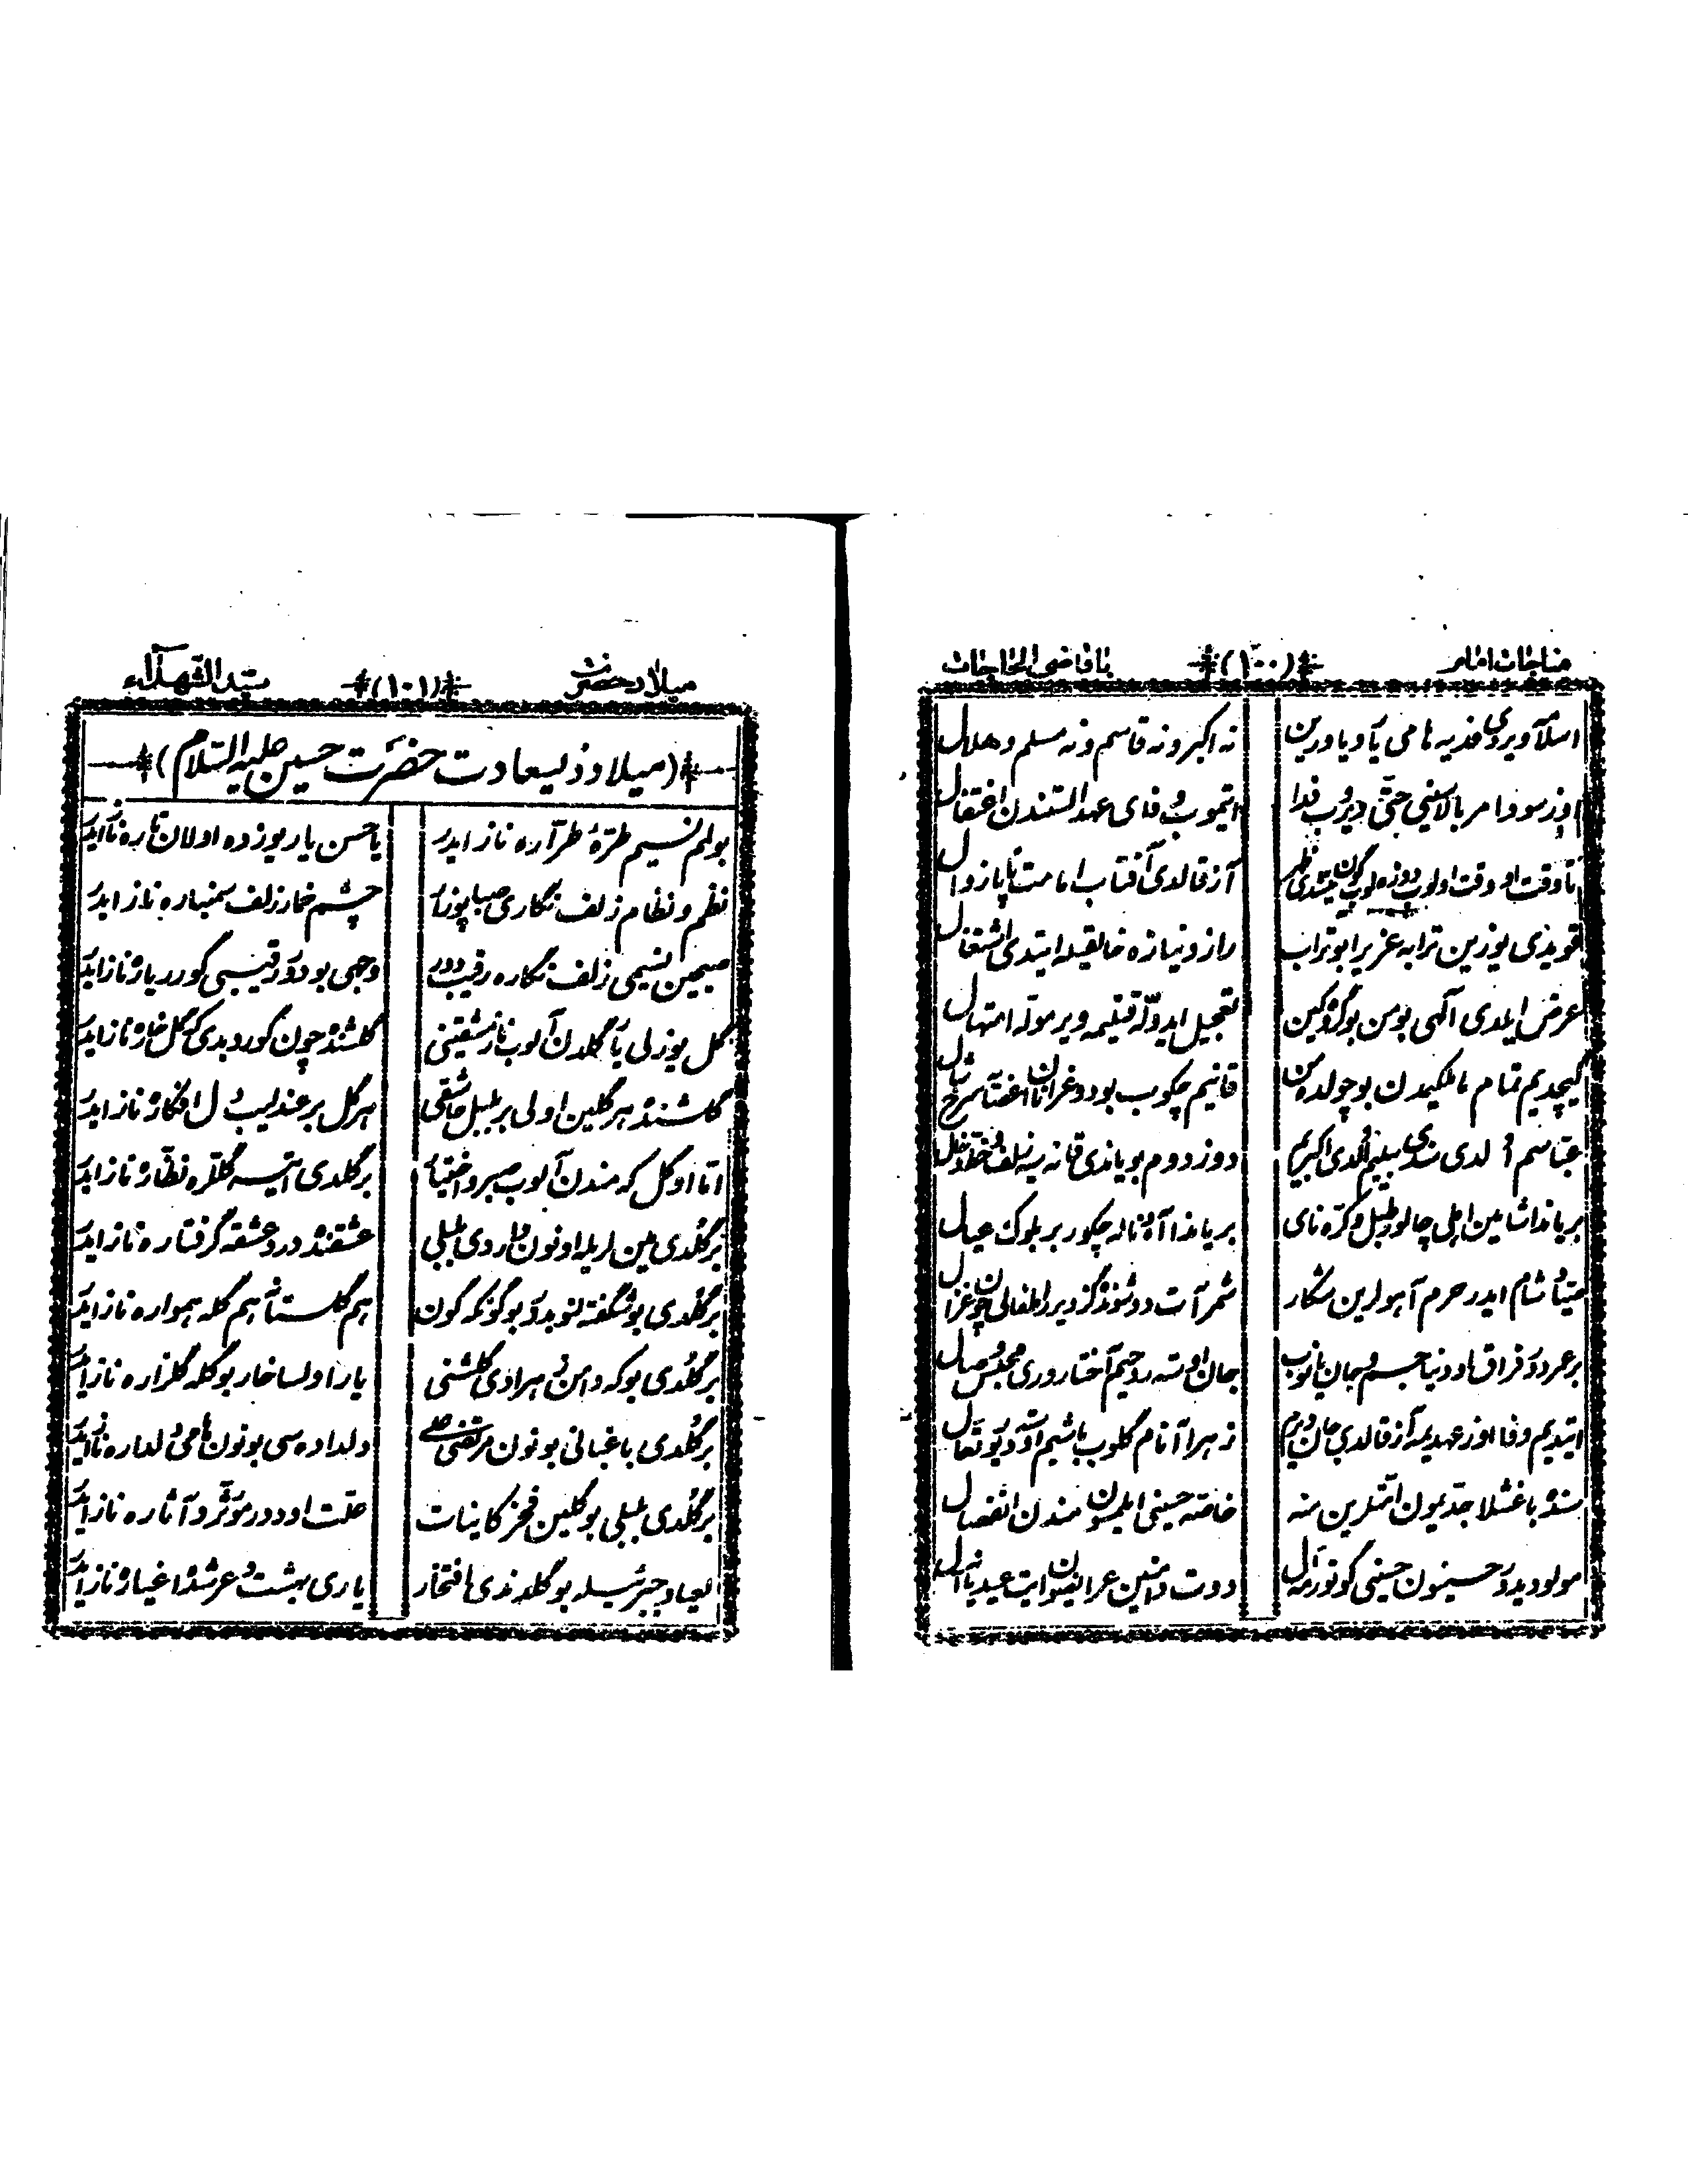 مناجات امام (۱۰۰) با قاضی الحاجات
اسلاّ ویردی فدیه هامی یآ و یاورین نه اکبر و نه قاسم و نه مسلم و هلال
اوز سووا مر بالاسینی حتّی دیروب فدا ایتموب وفای عهد الستندن اغتفال
تا وقت او وقت اولوب آز قالدی آفتاب امامت تاپا زوال
قویدی یوزین ترابه عزیز ابوتراب راز و نیازه خالقیله ایتدی اشتغال
عرض ایلدی آلهی بو من بو گروکین تعجیل ایدوله قتلیمه ویرموله امتهال
گیچدیم تمام مالکیمدن بو چولده من قانیم چکوب بودوغرانان اعضآ
عباسم اُلدی اُلدی اکبریم دوزدوم بویاندی قانه
بریاندا شامین اهلی چالور طبل و کرّه نای بریاندا آه و ناله چکور بربلوک عیال
شام ایدر حرم آهولرین شکار شمر آت دوشونده گزدیرر اطفالی چون غزال
بر عمردور فراق اودینا جسم و جان یانوب جان اوسته روحیم آختاروری وصال
ایتدیم وفا اوز عهدیمه آز قالدی جان ویرم زهرا آنام گلوب باشیم اوسته
سنده باغشلا جدیمون امتلرین منه خاصّه حسینی ایلمسون مندن انفصال
مولودیدور حسینون حسینی گوتور دوت دامنین عرایض
میلاد حضرت (۱۰۱) سید الشّهدآء
(میلاد ذیسعادت حضرت حسین علیه السّلام)
بولم نسیم طرّهٔ طرآره ناز ایدر یا حسن یار یوزده اولان تاره ناز ایدر
نظم و نظام زلف نگاری صبا پوزار چشم خمار زلف سمنباره ناز ایدر
صبحین نسیمی زلف نگاره رقیب دور وجهی بودور رقیبی گورر یاره ناز ایدر
گل یوزلی یار گلدن آلوب ناز مشقینی گلشنده چون گوروبدی کی گل خاره ناز ایدر
گلشنده هر گلین اولی بر بلبل عاشقی هر گل بر عندلیب دل افگاره ناز ایدر
امّا او گل که مندن آلوب صبر و اختیار بر گلدی ایتسه گللره نظّاره ناز ایدر
بر گلدی مین لریله اونون وار دی بلبلی عشقنده درد عشقه گرفتاره ناز ایدر
بر گلدی بو شگفته لنوبدور بوگونکه گون هم گلستانه هم گله همواره ناز ایدر
بر گلدی بو که دامن زهرادی گلشنی یار اولسا خار بو گله گلزاره ناز ایدر
بر گلدی باغبانی بونون مرتضی علی دلداده سی بونون هامی دلداره ناز ایدر
بر گلدی بلبلی بو گلین فخر کاینات علّت اودور مؤثّر و آثاره ناز ایدر
جبرئیله بو گلدندی افتخار یاری بهشت و عرشده اغیاره ناز ایدر